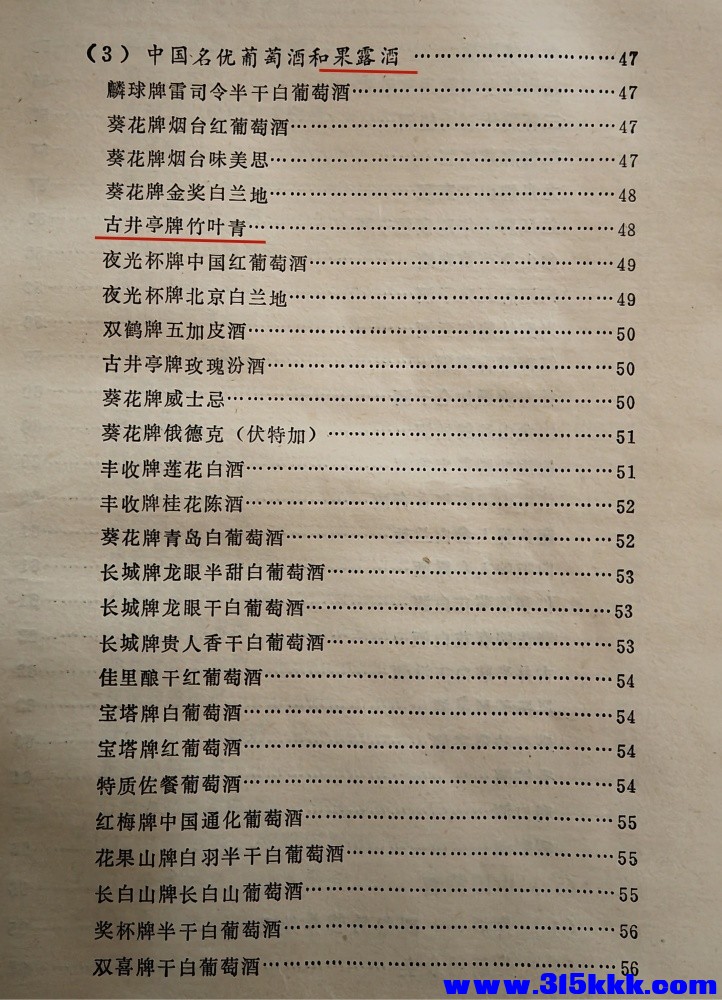 （3）中国名优葡萄酒和果露酒 ……………………… 47
麟球牌雷司令半干白葡萄酒……………………………… 47
葵花牌烟台红葡萄酒……………………………………… 47
葵花牌烟台味美思………………………………………… 47
葵花牌金奖白兰地………………………………………… 48
古井亭牌竹叶青…………………………………………… 48
夜光杯牌中国红葡萄酒…………………………………… 49
夜光杯牌北京白兰地……………………………………… 49
双鹤牌五加皮酒…………………………………………… 50
古井亭牌玫瑰汾酒………………………………………… 50
葵花牌威士忌……………………………………………… 50
葵花牌俄德克（伏特加）………………………………… 51
丰收牌莲花白酒…………………………………………… 51
丰收牌桂花陈酒…………………………………………… 52
葵花牌青岛白葡萄酒……………………………………… 52
长城牌龙眼半甜白葡萄酒………………………………… 53
长城牌龙眼干白葡萄酒…………………………………… 53
长城牌贵人香干白葡萄酒………………………………… 53
佳里酿干红葡萄酒………………………………………… 54
宝塔牌白葡萄酒…………………………………………… 54
宝塔牌红葡萄酒…………………………………………… 54
特质佐餐葡萄酒…………………………………………… 54
红梅牌中国通化葡萄酒…………………………………… 55
花果山牌白羽半干白葡萄酒……………………………… 55
长白山牌长白山葡萄酒…………………………………… 55
奖杯牌半干白葡萄酒……………………………………… 56
双喜牌干白葡萄酒………………………………………… 56
www.315kkk.com